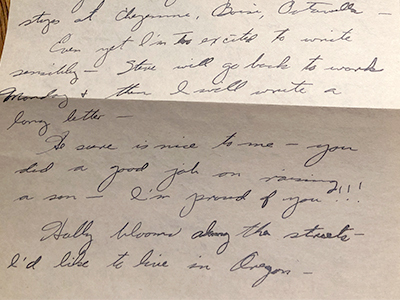 stops at Cheyenne, Boise, Ontario —
Even yet I'm too excited to write
sensibly — Steve will go back to work
Monday & then I will write a
long letter —
He sure is nice to me — you
did a good job on raising
a son — I'm proud of you!!!
Holly blooms along the streets —
I'd like to live in Oregon —